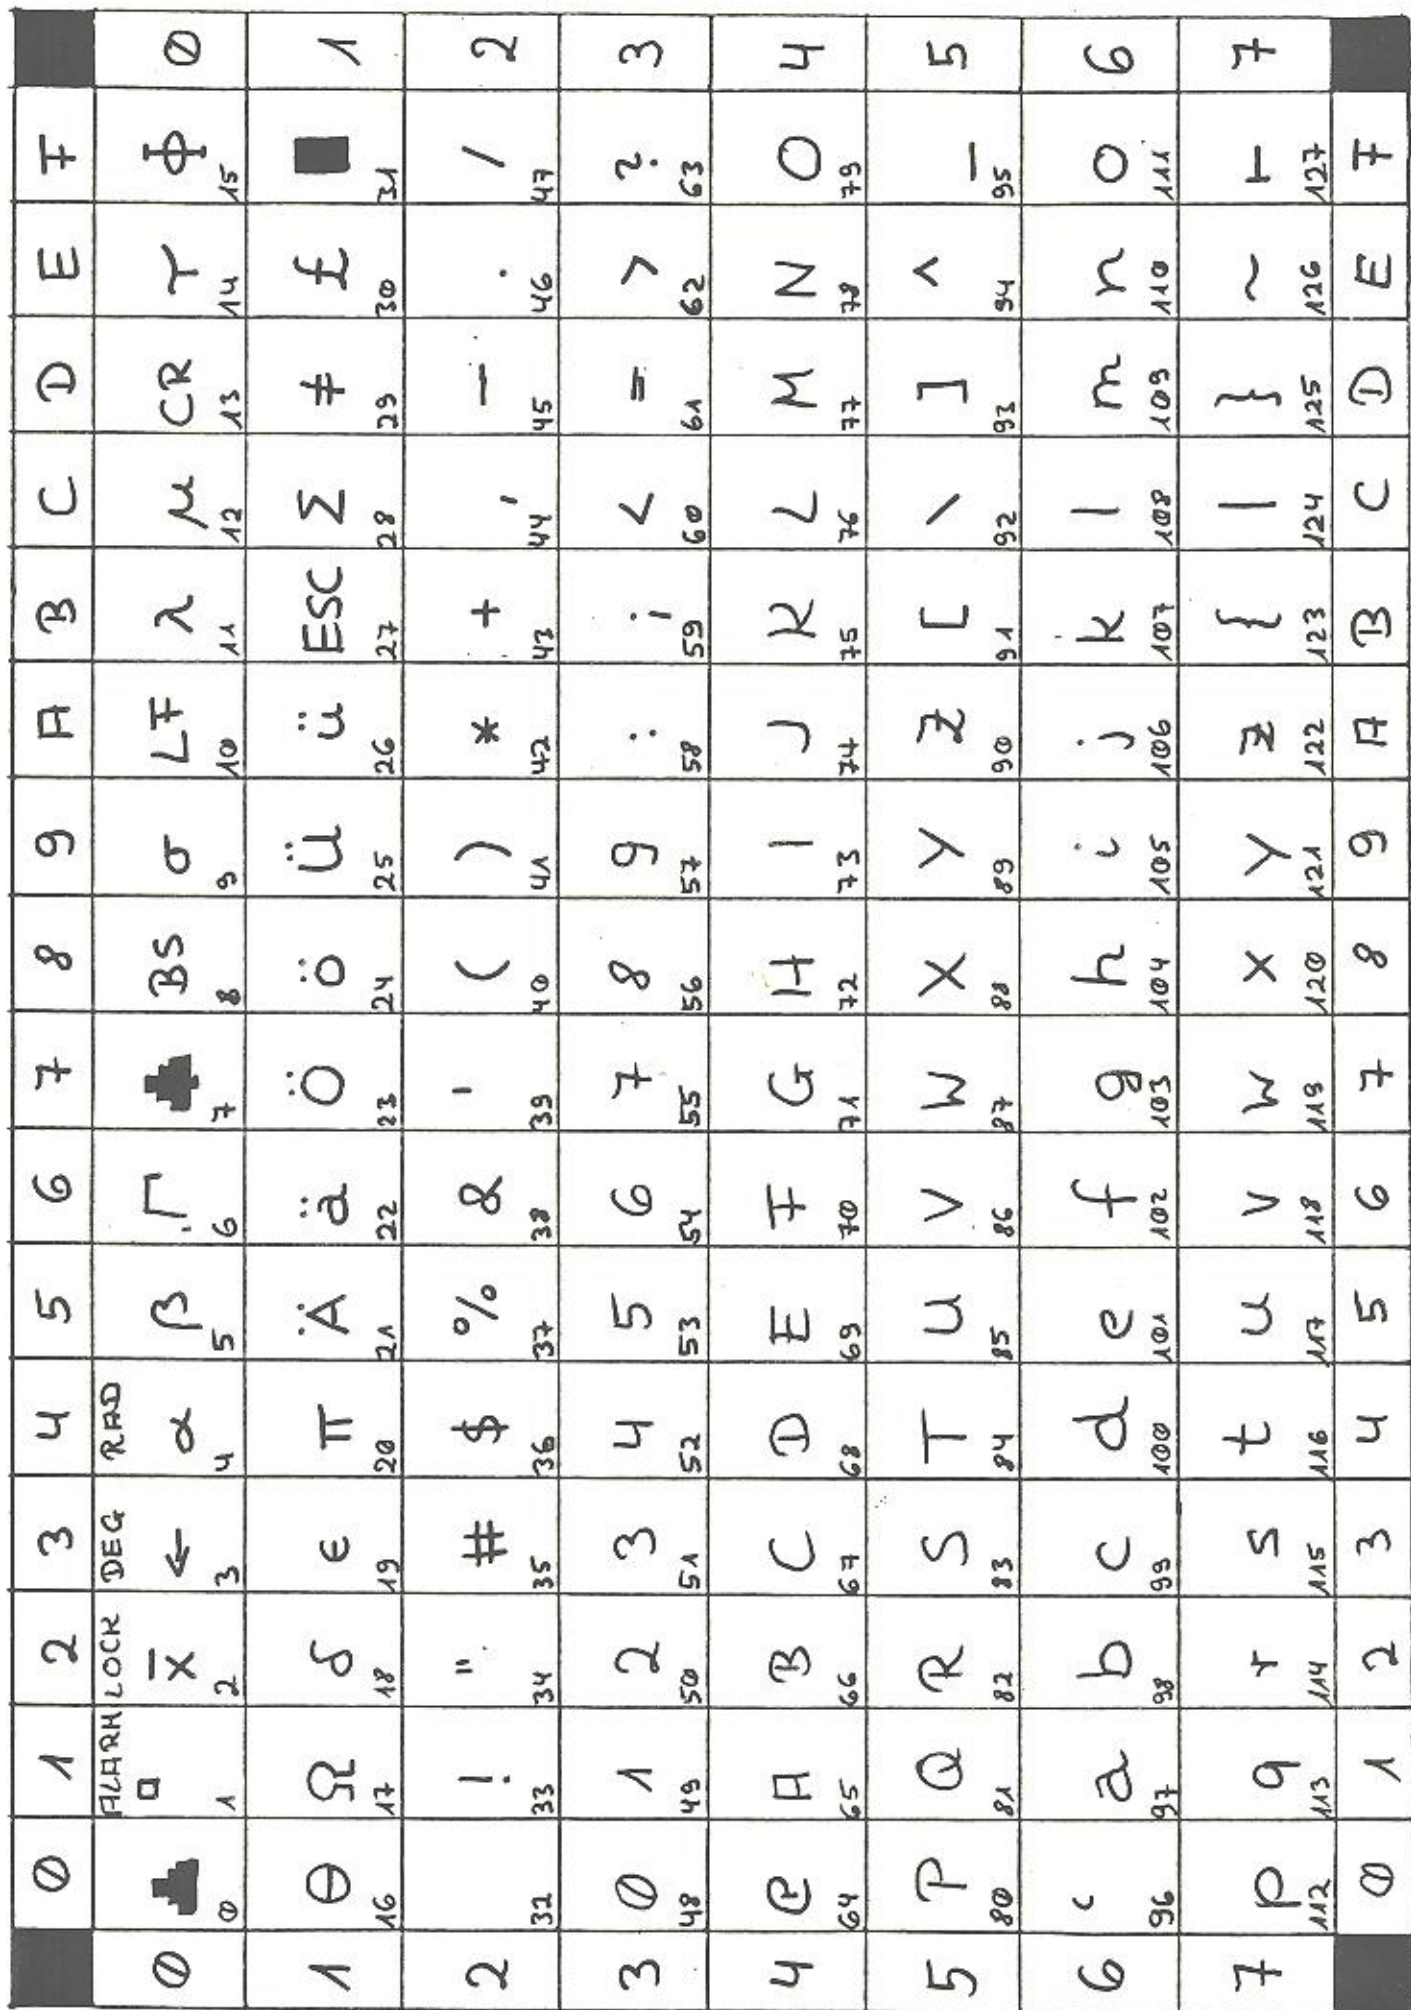 0 1 2 3 4 5 6 7 8 9 A B C D E F
0 0 ALARM 1 LOCK x̄ 2 DEG ← 3 RAD α 4 β 5 Γ 6 7 BS 8 σ 9 LF 10 λ 11 μ 12 CR 13 τ 14 Φ 15 0
1 Θ 16 Ω 17 δ 18 ϵ 19 π 20 Ä 21 ä 22 Ö 23 ö 24 Ü 25 ü 26 ESC 27 Σ 28 ≠ 29 £ 30 31 1
2 32 ! 33 " 34 # 35 $ 36 % 37 & 38 ' 39 ( 40 ) 41 * 42 + 43 , 44 − 45 . 46 / 47 2
3 0 48 1 49 2 50 3 51 4 52 5 53 6 54 7 55 8 56 9 57 : 58 ; 59 < 60 = 61 > 62 ? 63 3
4 @ 64 A 65 B 66 C 67 D 68 E 69 F 70 G 71 H 72 I 73 J 74 K 75 L 76 M 77 N 78 O 79 4
5 P 80 Q 81 R 82 S 83 T 84 U 85 V 86 W 87 X 88 Y 89 Z 90 [ 91 \ 92 ] 93 ^ 94 _ 95 5
6 ` 96 a 97 b 98 c 99 d 100 e 101 f 102 g 103 h 104 i 105 j 106 k 107 l 108 m 109 n 110 o 111 6
7 p 112 q 113 r 114 s 115 t 116 u 117 v 118 w 119 x 120 y 121 z 122 { 123 | 124 } 125 ~ 126 ⊢ 127 7
0 1 2 3 4 5 6 7 8 9 A B C D E F